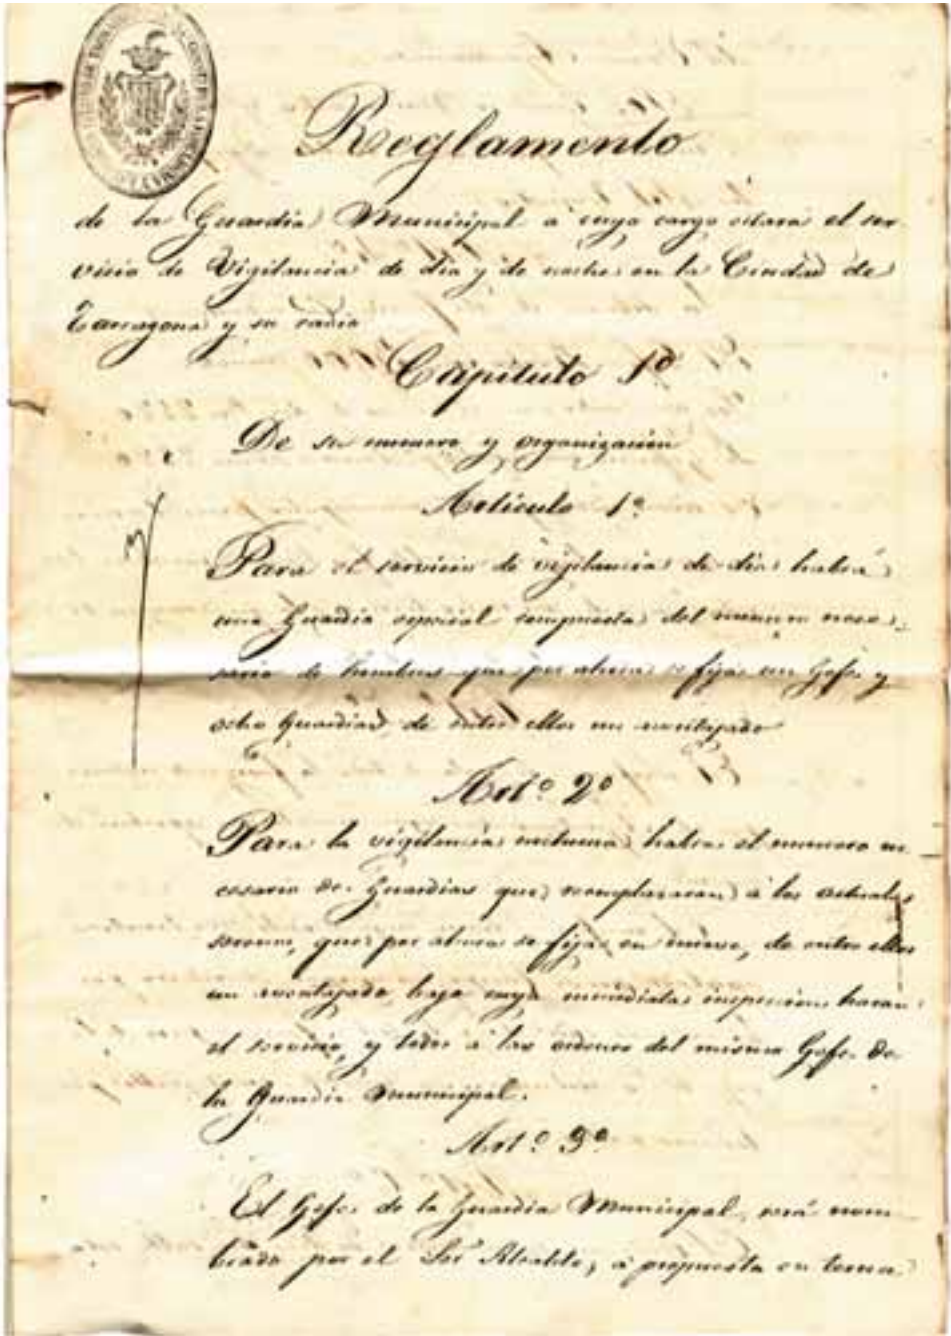 Reglamento
de la Guardia Municipal a cuyo cargo estará el ser
vicio de Vigilancia de dia y de noche en la Ciudad de
Tarragona y su radio
Capitulo 1º
De su numero y organizacion
Articulo 1º
Para el servicio de vigilancia de dia habrá
una Guardia especial compuesta del numero nece-
sario de hombres que por ahora se fija en un Gefe y
ocho Guardias de entre ellos un aventajado
Artº 2º
Para la vigilancia nocturna habra el numero ne
cesario de Guardias que reemplazaran á los actuales
serenos, que por ahora se fija en nueve, de entre ellos
un aventajado bajo cuya inmediata inspeccion haran
el servicio, y todos á las ordenes del mismo Gefe de
la Guardia Municipal.
Artº 3º
El Gefe de la Guardia Municipal, será nom
brado por el Sor Alcalde, á propuesta en terna